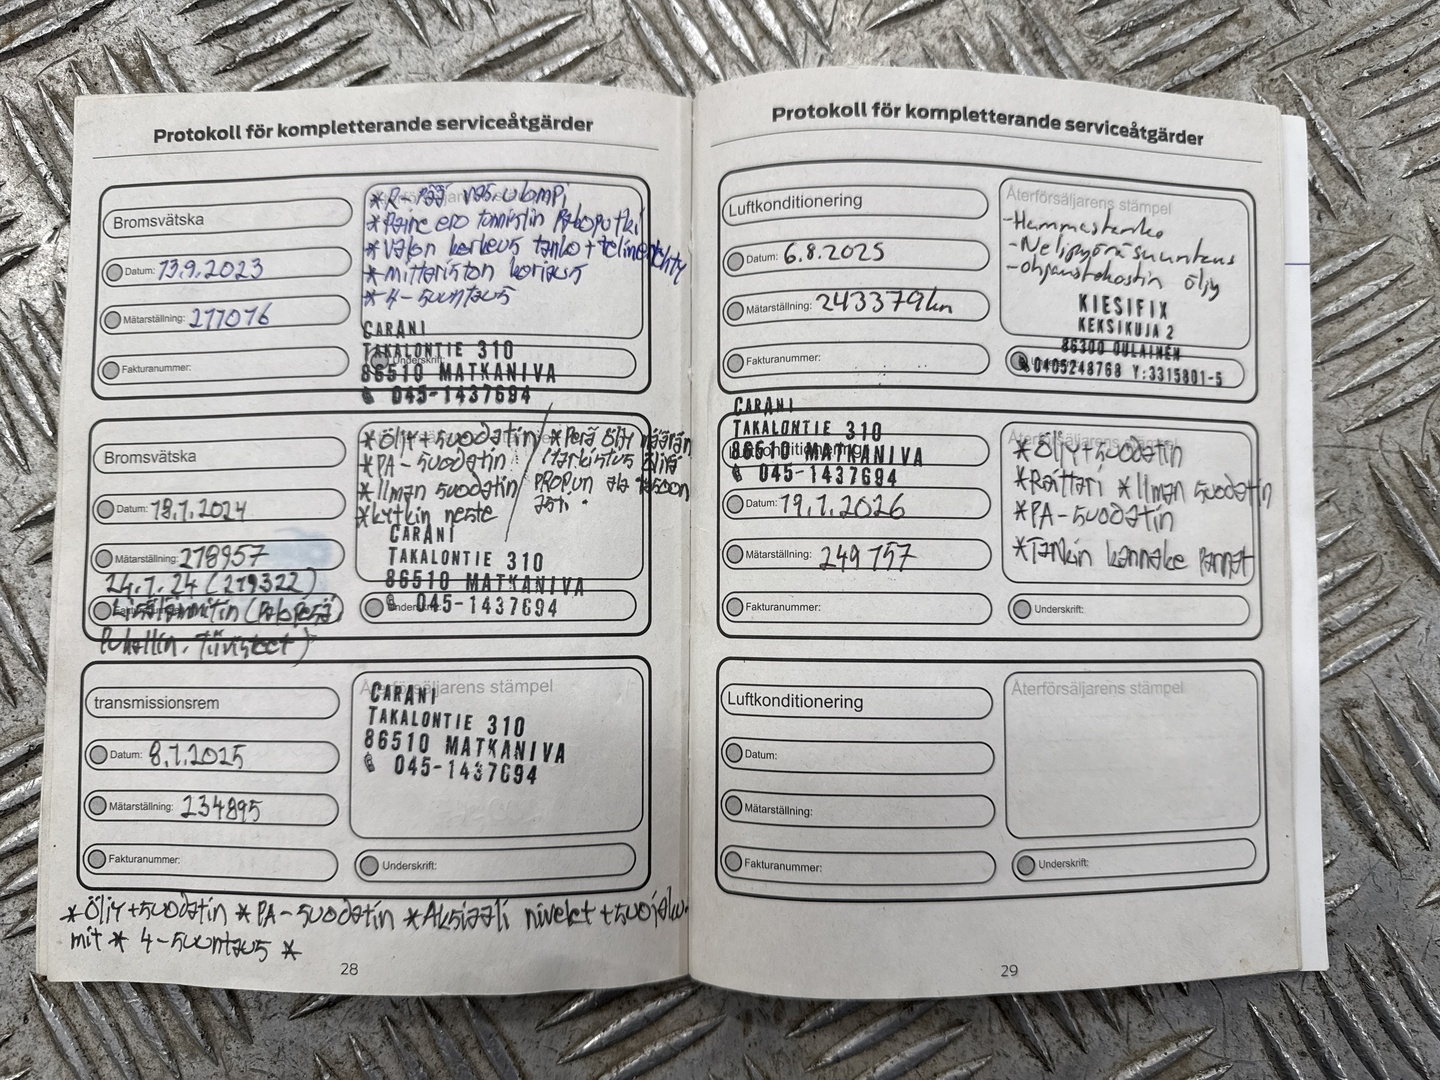 Protokoll för kompletterande serviceåtgärder
Bromsvätska
Datum: 13.9.2023
Mätarställning: 217076
Fakturanummer:
*R-pää vas. ulompi
*Paine ero tunnistin Pakoputki
*Valon korkeus tanko + telinenehty
*mittariston korjaus
*4-suuntaus
CARANI
TAKALONTIE 310
86510 MATKANIVA
045-1437694
Bromsvätska
Datum: 18.7.2024
Mätarställning: 218957
24.7.24 (219322)
Lisälämmitin (Pakoperä,
Puhallin, Tiivisteet)
*Öljy+suodatin
*PA-suodatin
*Ilman suodatin
*kytkin neste
*Perä Öljy määrän
tarkistus
PROPUN ala tasoon
asti.
CARANI
TAKALONTIE 310
86510 MATKANIVA
045-1437694
transmissionsrem
Datum: 8.7.2025
Mätarställning: 234895
Fakturanummer:
Återförsäljarens stämpel
CARANI
TAKALONTIE 310
86510 MATKANIVA
045-1437694
Underskrift:
*Öljy+suodatin *PA-suodatin *Aksiaali nivelet +suojaku
mit * 4-suuntaus *
28
Protokoll för kompletterande serviceåtgärder
Luftkonditionering
Datum: 6.8.2025
Mätarställning: 243379km
Fakturanummer:
Återförsäljarens stämpel
-Hammastanko
-Nelipyöräsuuntaus
-ohjaustehostin öljy
KIESIFIX
KEKSIKUJA 2
86300 OULAINEN
0405248768 Y:3315801-5
CARANI
TAKALONTIE 310
86510 MATKANIVA
045-1437694
Luftkonditionering
Datum: 19.1.2026
Mätarställning: 249757
Fakturanummer:
Återförsäljarens stämpel
*Öljy+suodatin
*Raittari *Ilman suodatin
*PA-suodatin
*Tankin kannake Pannat
Underskrift:
Luftkonditionering
Datum:
Mätarställning:
Fakturanummer:
Återförsäljarens stämpel
Underskrift:
29